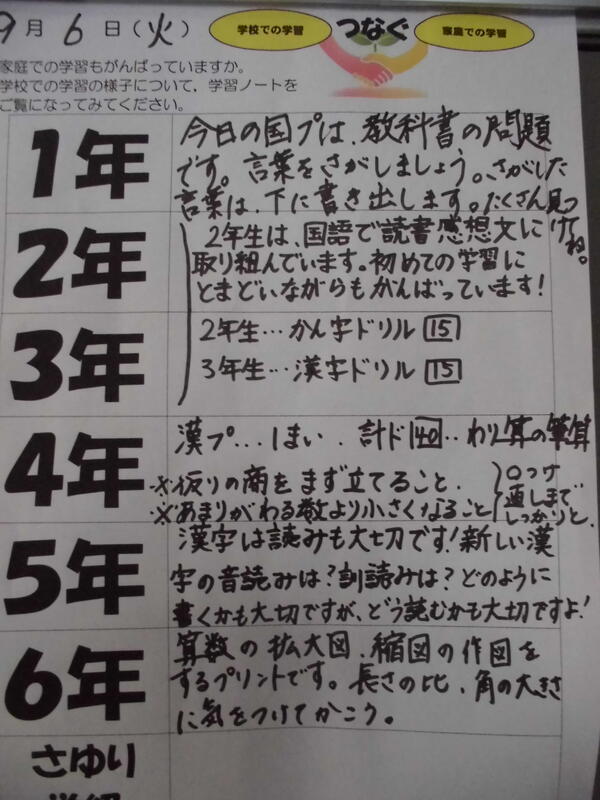 9月6日(火)
学校での学習
つなぐ
家庭での学習
家庭での学習もがんばっていますか。
学校での学習の様子について，学習ノートを
ご覧になってみてください。
1年
今日の国プは、教科書の問題
です。言葉をさがしましょう。さがした
言葉は、下に書き出します。たくさん見つ
けてね。
2年
2年生は、国語で読書感想文に
取り組んでいます。初めての学習に
とまどいながらもがんばっています!
3年
2年生…かん字ドリル 15
3年生…漢字ドリル 15
4年
漢プ…1まい．計ド40‥わり算の筆算
※仮りの商をまず立てること．
※あまりがわる数より小さくなること
○つけ
直しまで
しっかりと．
5年
漢字は読みも大切です!新しい漢
字の音読みは?訓読みは?どのように
書くかも大切ですが、どう読むかも大切ですよ!
6年
算数の拡大図、縮図の作図を
するプリントです。長さの比、角の大きさ
に気をつけてかこう。
さゆり
学級